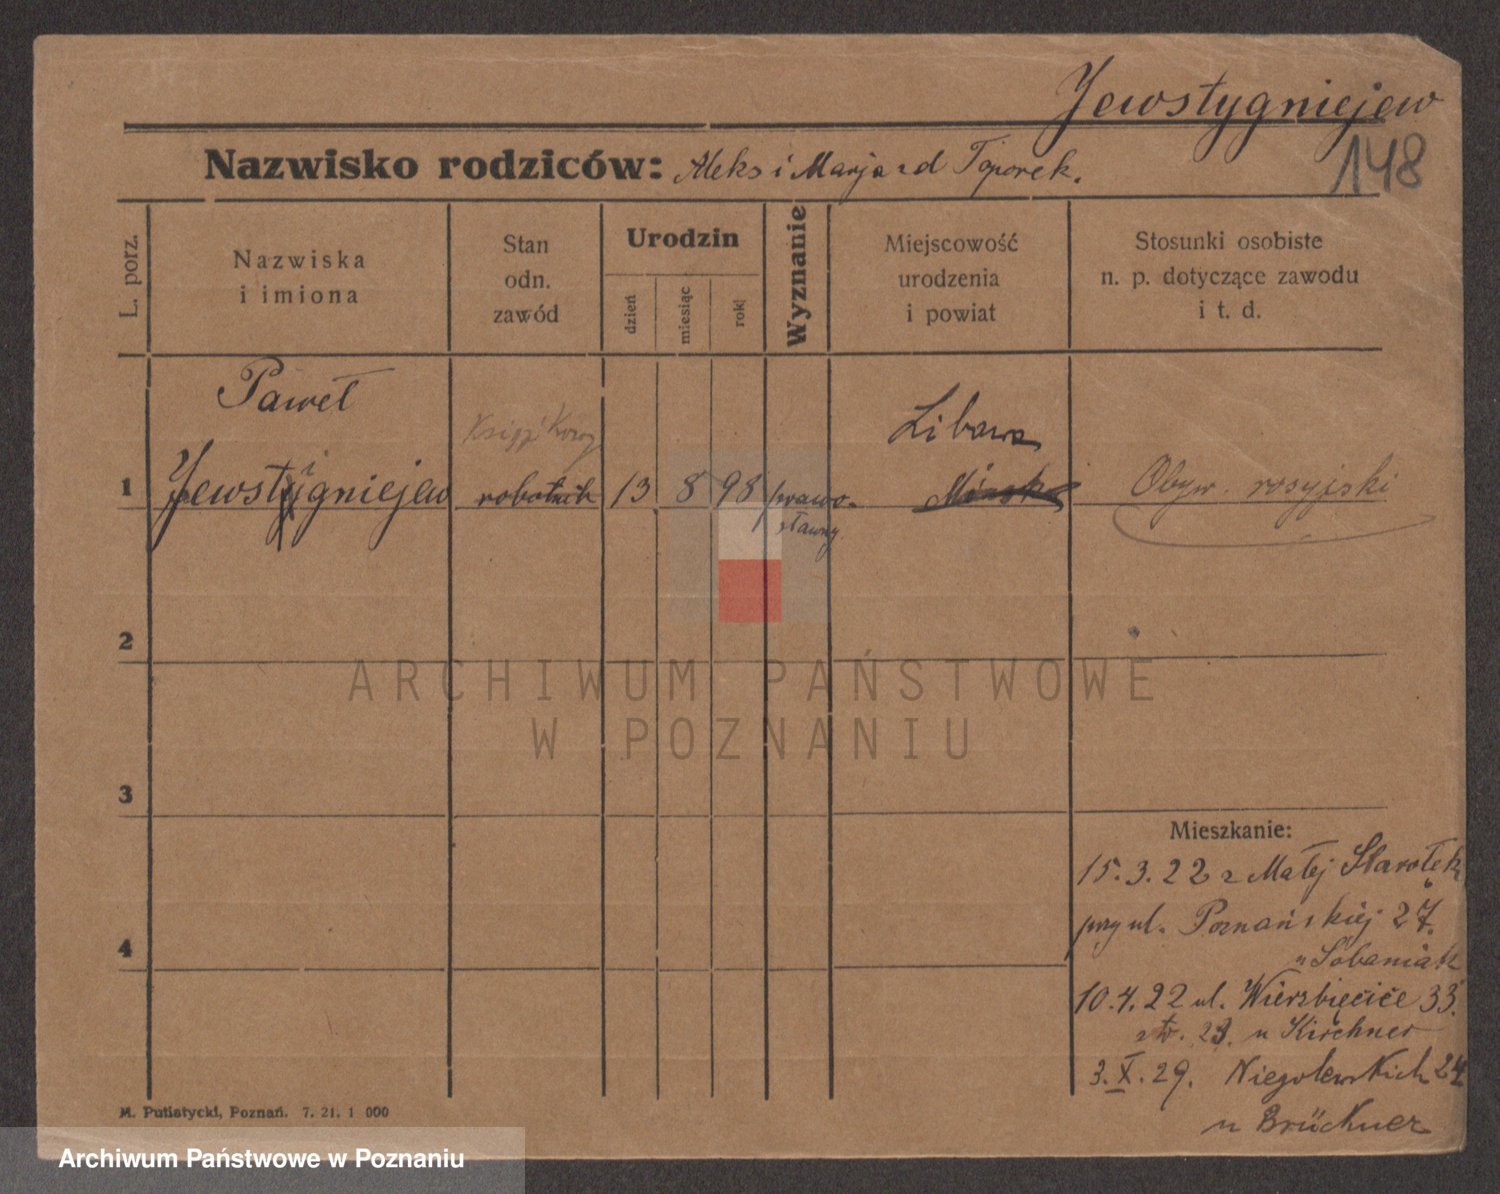 Jewstygniejew
148
Nazwisko rodziców: Aleks i Marja zd Toporek.
L. porz.
Nazwiska
i imiona
Stan
odn.
zawód
Urodzin
dzień
miesiąc
rok
Wyznanie
Miejscowość
urodzenia
i powiat
Stosunki osobiste
n. p. dotyczące zawodu
i t. d.
Paweł
Libawa
1 Jewstygniejew robotnik 13 8 98 prawo- Mińsk Obyw. rosyjski
sławny
2
3
4
Mieszkanie:
15.3.22 z Małej Starołęk
przy ul. Poznańskiej 27.
u Sobaniak
10.4.22 ul. Wierzbięcice 33.
23. u Kirchner
3.X.29. Niegolewskich 24
u Brückner
M. Putiatycki, Poznań. 7. 21. 1 000
ARCHIWUM PAŃSTWOWE
W POZNANIU
Archiwum Państwowe w Poznaniu